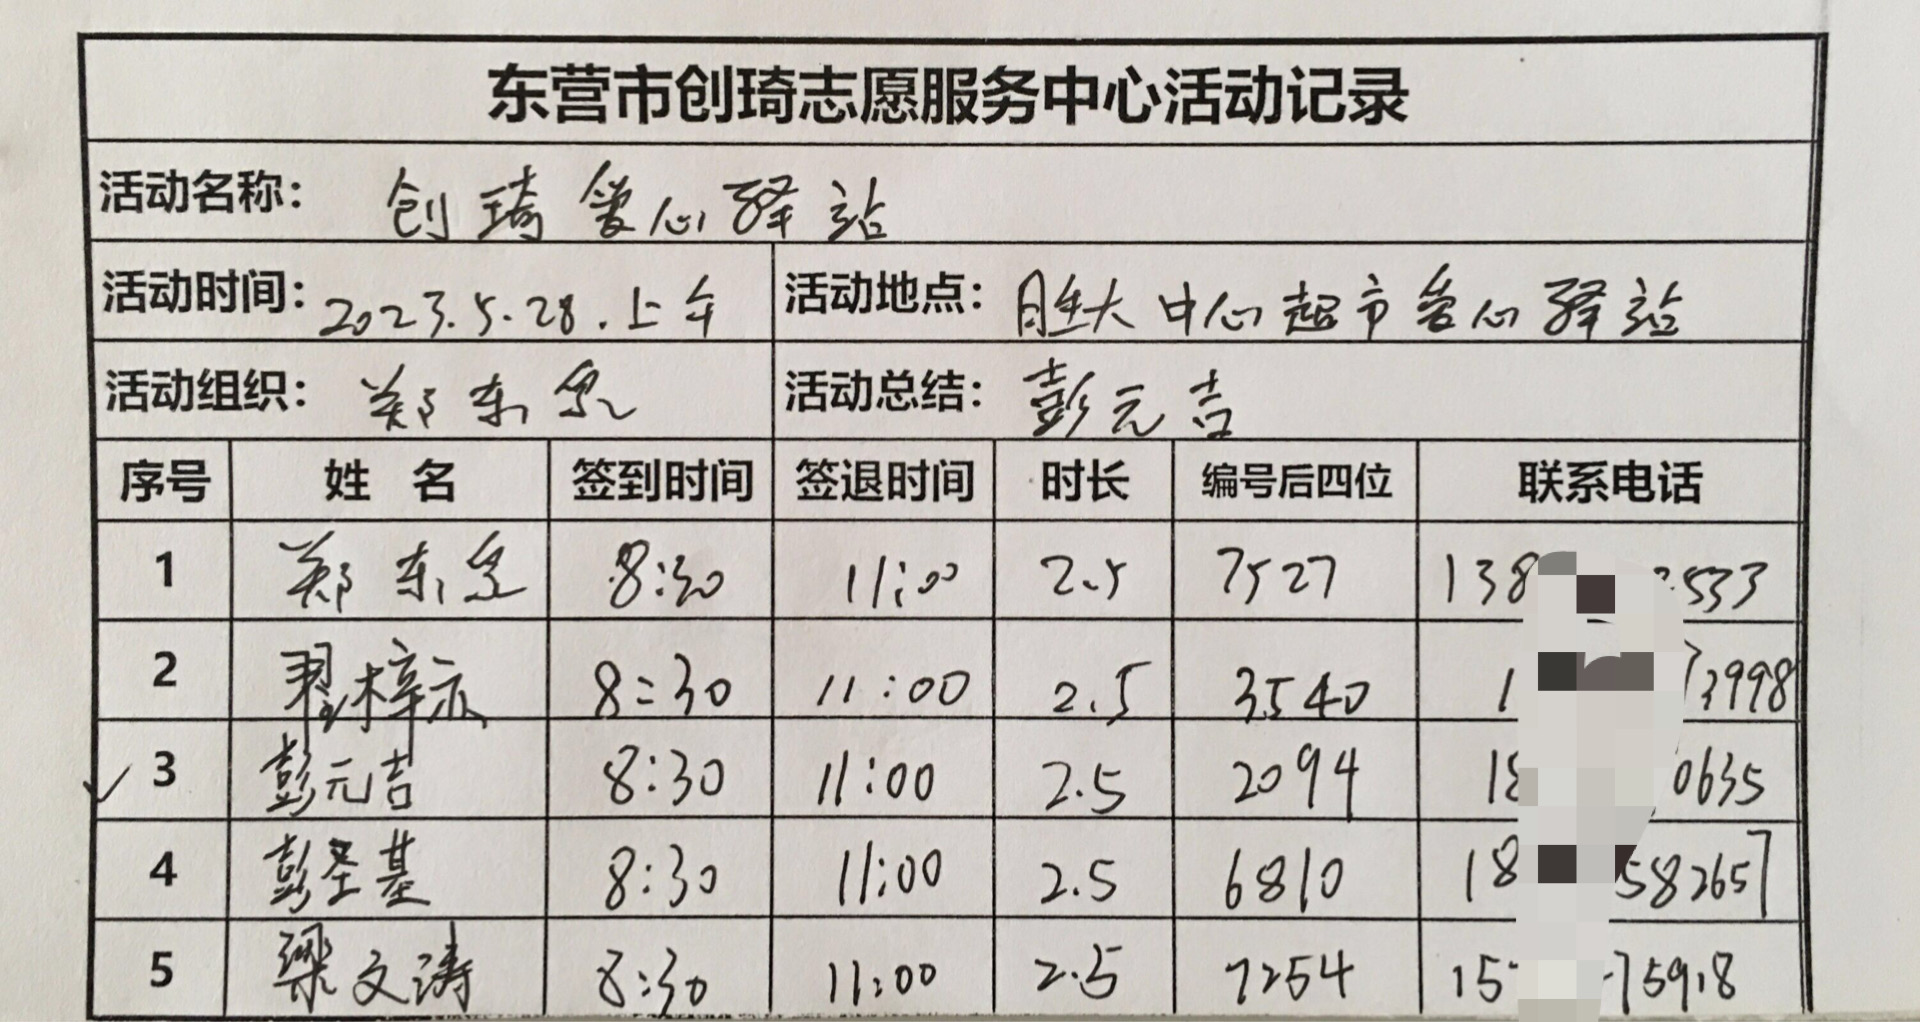 东营市创琦志愿服务中心活动记录
活动名称： 创琦爱心驿站
活动时间：2023.5.28.上午 活动地点：胜大中心超市爱心驿站
活动组织： 郑东 活动总结：彭元吉
序号 姓名 签到时间 签退时间 时长 编号后四位 联系电话
1 郑东 8:30 11:00 2.5 7527 138 533
2 翟梓亦 8:30 11:00 2.5 3540 1 3998
3 彭元吉 8:30 11:00 2.5 2094 18 0635
4 彭圣基 8:30 11:00 2.5 6810 18 582657
5 梁文涛 8:30 11:00 2.5 7254 15 75918